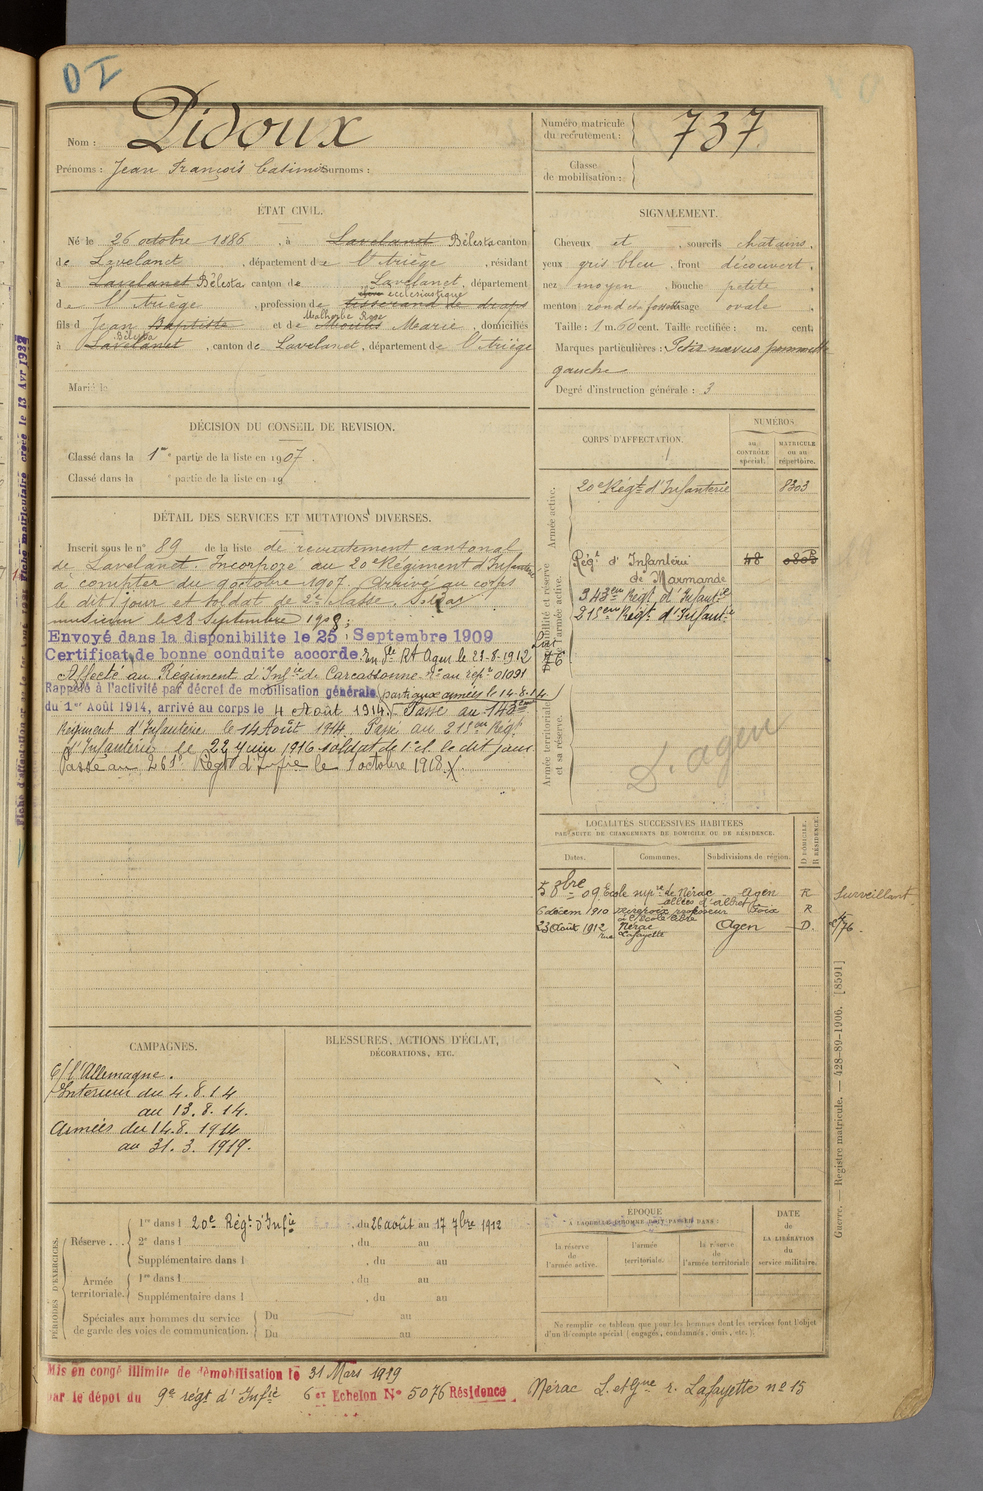 DI
Nom : Pidoux
Prénoms : Jean François Casimir Surnoms :
ÉTAT CIVIL.
Né le 26 octobre 1886, à Lavelanet Bélesta canton
de Lavelanet, département de l'Ariège, résidant
à Lavelanet Bélesta canton de Lavelanet, département
de l'Ariège, profession de élève ecclésiastique tisserand de draps
fils d Jean Baptiste et de Malherbe Rose Moulis Marie, domiciliés
à Lavelanet Bélesta, canton de Lavelanet, département de l'Ariège
Marié le
DÉCISION DU CONSEIL DE REVISION.
Classé dans la 1re partie de la liste en 1907.
Classé dans la partie de la liste en 19
DÉTAIL DES SERVICES ET MUTATIONS DIVERSES.
Inscrit sous le n° 89 de la liste de recrutement cantonal
de Lavelanet. Incorporé au 20e Régiment d'Infanterie
à compter du 9 octobre 1907. Arrivé au corps
le dit jour et soldat de 2e classe. Soldat
musicien le 28 Septembre 1908;
Envoyé dans la disponibilité le 25 Septembre 1909
Certificat de bonne conduite accordé. En Dle Rt Agen le 23-8-1912
Affecté au Régiment d'Infie de Carcassonne. N° au répre 01091
Rappelé à l'activité par décret de mobilisation générale parti aux armées le 14-8-14
du 1er Août 1914, arrivé au corps le 4 Août 1914. Passé au 143eme
Régiment d'Infanterie le 14 Août 1914. Passé au 215eme Régt
d'Infanterie le 22 Juin 1916 soldat de 1e cl. le dit jour
Passé au 261e Régt d'Infie le 1 octobre 1918. X.
CAMPAGNES.
C/ l'Allemagne.
Intérieur du 4.8.14
au 13.8.14.
Armées du 14.8.1914
au 31.3.1919.
BLESSURES, ACTIONS D'ÉCLAT,
DÉCORATIONS, ETC.
PÉRIODES D'EXERCICES.
Réserve... 1re dans l 20e Régt d'Infie, du 26 août au 17 7bre 1912
2e dans l , du au
Supplémentaire dans l , du au
Armée territoriale. 1re dans l , du au
Supplémentaire dans l , du au
Spéciales aux hommes du service Du au
de garde des voies de communication. Du au
Mis en congé illimité de démobilisation le 31 Mars 1919
par le dépôt du 9e régt d'Infie 6er Echelon N° 5076 Résidence Nérac L. et Gne r. Lafayette n° 15
Numéro matricule
du recrutement : 737
Classe
de mobilisation :
SIGNALEMENT.
Cheveux et, sourcils chatains,
yeux gris bleu, front découvert,
nez moyen, bouche petite,
menton rond à fossette visage ovale
Taille : 1 m. 60 cent. Taille rectifiée : m. cent.
Marques particulières : Petit nævus pommette
gauche
Degré d'instruction générale : 3
CORPS D'AFFECTATION.
NUMÉROS
AU CONTRÔLE spécial.
MATRICULE ou au répertoire.
Armée active.
20e Régt d'Infanterie 8303
Disponibilité et réserve de l'armée active.
Régt d'Infanterie 48 0805
de Marmande
343eme Régt d'Infantie
215eme Régt d'Infantie
Armée territoriale et sa réserve.
D. agen
LOCALITÉS SUCCESSIVES HABITÉES
PAR SUITE DE CHANGEMENTS DE DOMICILE OU DE RÉSIDENCE.
Dates. Communes. Subdivisions de région. D DOMICILE. R RÉSIDENCE.
5 8bre 09 Ecole supre de Nérac allées d'Albret Agen R Surveillant
6 décem 1910 professeur à l'école libre Foix R
23 Août 1912 Nérac rue Lafayette Agen D.
ÉPOQUE
À LAQUELLE L'HOMME DOIT PASSER DANS :
la réserve de l'armée active.
l'armée territoriale.
la réserve de l'armée territoriale
DATE de LA LIBÉRATION du service militaire.
Ne remplir ce tableau que pour les hommes dont les services font l'objet
d'un décompte spécial (engagés, condamnés, omis, etc.).
Guerre. — Registre matricule. — 428-89-1906. [8591]
Fiche matriculaire créée le 13 Avr 1922